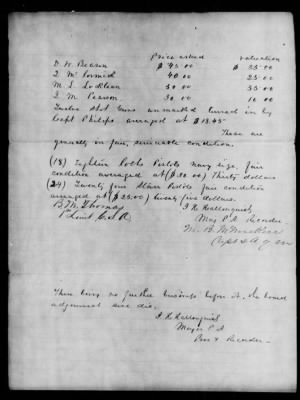 Price asked valuation
D. W. Beason $ 45.00 $ 35.00
40.00 25.00
M. L. 50.00 35.00
J. M. Pearson 30.00 10.00
Twelve Shot Guns unmarked turned in by
Capt Philips averaged at $18.45
These are
generally in fair, serviceable condition.
(18) Eighteen Colts Pistols navy size, fair
condition averaged at ($30.00) Thirty dollars
(24) Twenty four Starr Pistols fair condition
averaged at ($25.00) twenty five dollars.
B. M. Thomas J. H. Hallonquist,
1st Lieut C.S.A. Maj P.A. Recorder
Capt & A.
There being no further business before it, the board
adjourned sine die.
J. H. Hallonquist
Major P.A.
Recorder